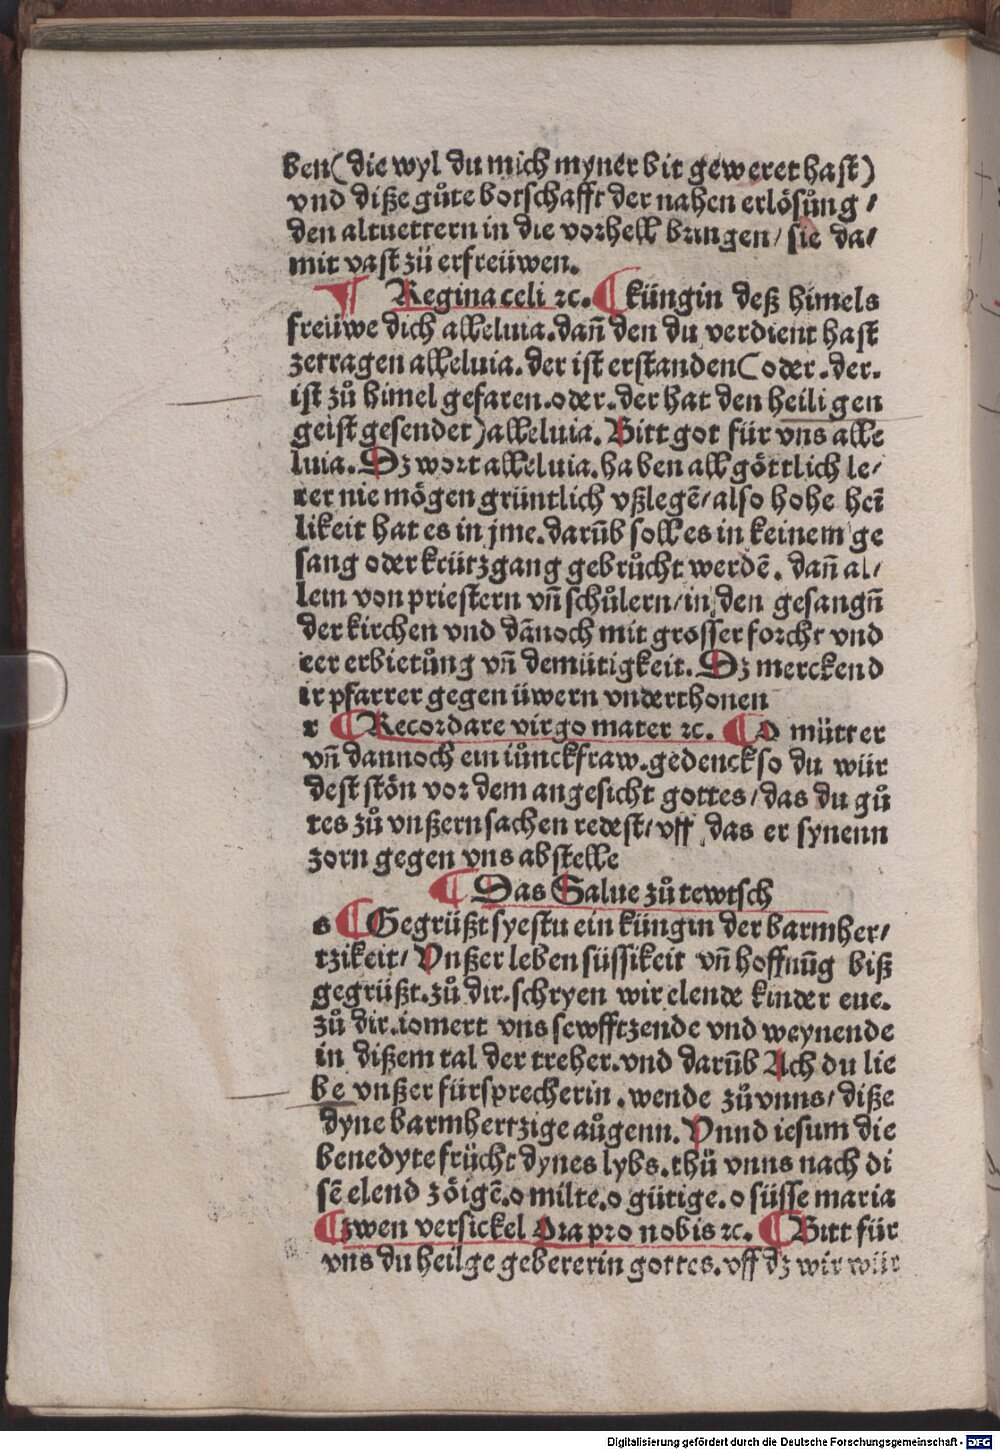 ben (die wyl du mich myner bit geweret hast)
vnd diße gůte botschafft der nahen erlösůng /
den altuettern in die vorhell bringen / sie da/
mit vast zů erfreüwen.
¶ Regina celi ꝛc. ¶ küngin deß himels
freüwe dich alleluia. dañ den du verdient hast
zetragen alleluia. der ist erstanden (oder. der.
ist zů himel gefaren. oder. der hat den heiligen
geist gesendet) alleluia. Bitt got für vns alle
luia. Dz wort alleluia. haben all göttlich le/
rer nie mögen grüntlich vßlegē / also hohe hei
likeit hat es in jme. darūb soll es in keinem ge
sang oder krützgang gebrůcht werdē. dañ al/
lein von priestern vñ schůlern / in den gesangñ
der kirchen vnd dānoch mit grosser forcht vnd
eer erbietůng vñ demütigkeit. Dz merckend
ir pfarrer gegen üwern vnderthonen
r ¶ Recordare virgo mater ꝛc. ¶ O můtter
vñ dannoch ein iůnckfraw. gedenck so du wür
dest stön vor dem angesicht gottes / das du gů
tes zů vnßern sachen redest / vff das er synenn
zorn gegen vns abstelle
¶ Das Salue zů tewtsch
s ¶ Gegrüßt syestu ein küngin der barmher/
tzikeit / Vnßer leben süssikeit vñ hoffnūg biß
gegrüßt. zů dir. schryen wir elende kinder eue.
zů dir. iomert vns sewfftzende vnd weynende
in dißem tal der treher. vnd darūb Ach du lie
be vnßer fürsprecherin. wende zů vnns / diße
dyne barmhertzige aůgenn. Vnnd iesum die
benedyte frücht dynes lybs. thů vnns nach di
sē elend zöigē. o milte. o gütige. o süsse maria
¶ zwen versickel Ora pro nobis ꝛc. ¶ Bitt für
vns du heilge gebererin gottes. vff dz wir wür
Digitalisierung gefördert durch die Deutsche Forschungsgemeinschaft - DFG